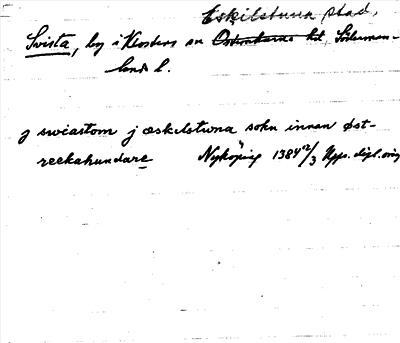 Eskilstuna stad,
Svista, by i Klosters sn Österrekarne hd, Söderman-
lands l.
j swiastom j æskelstwna sokn innan øst-
reekahundare Nyköping 1384 12/3 Upps. dipl. orig